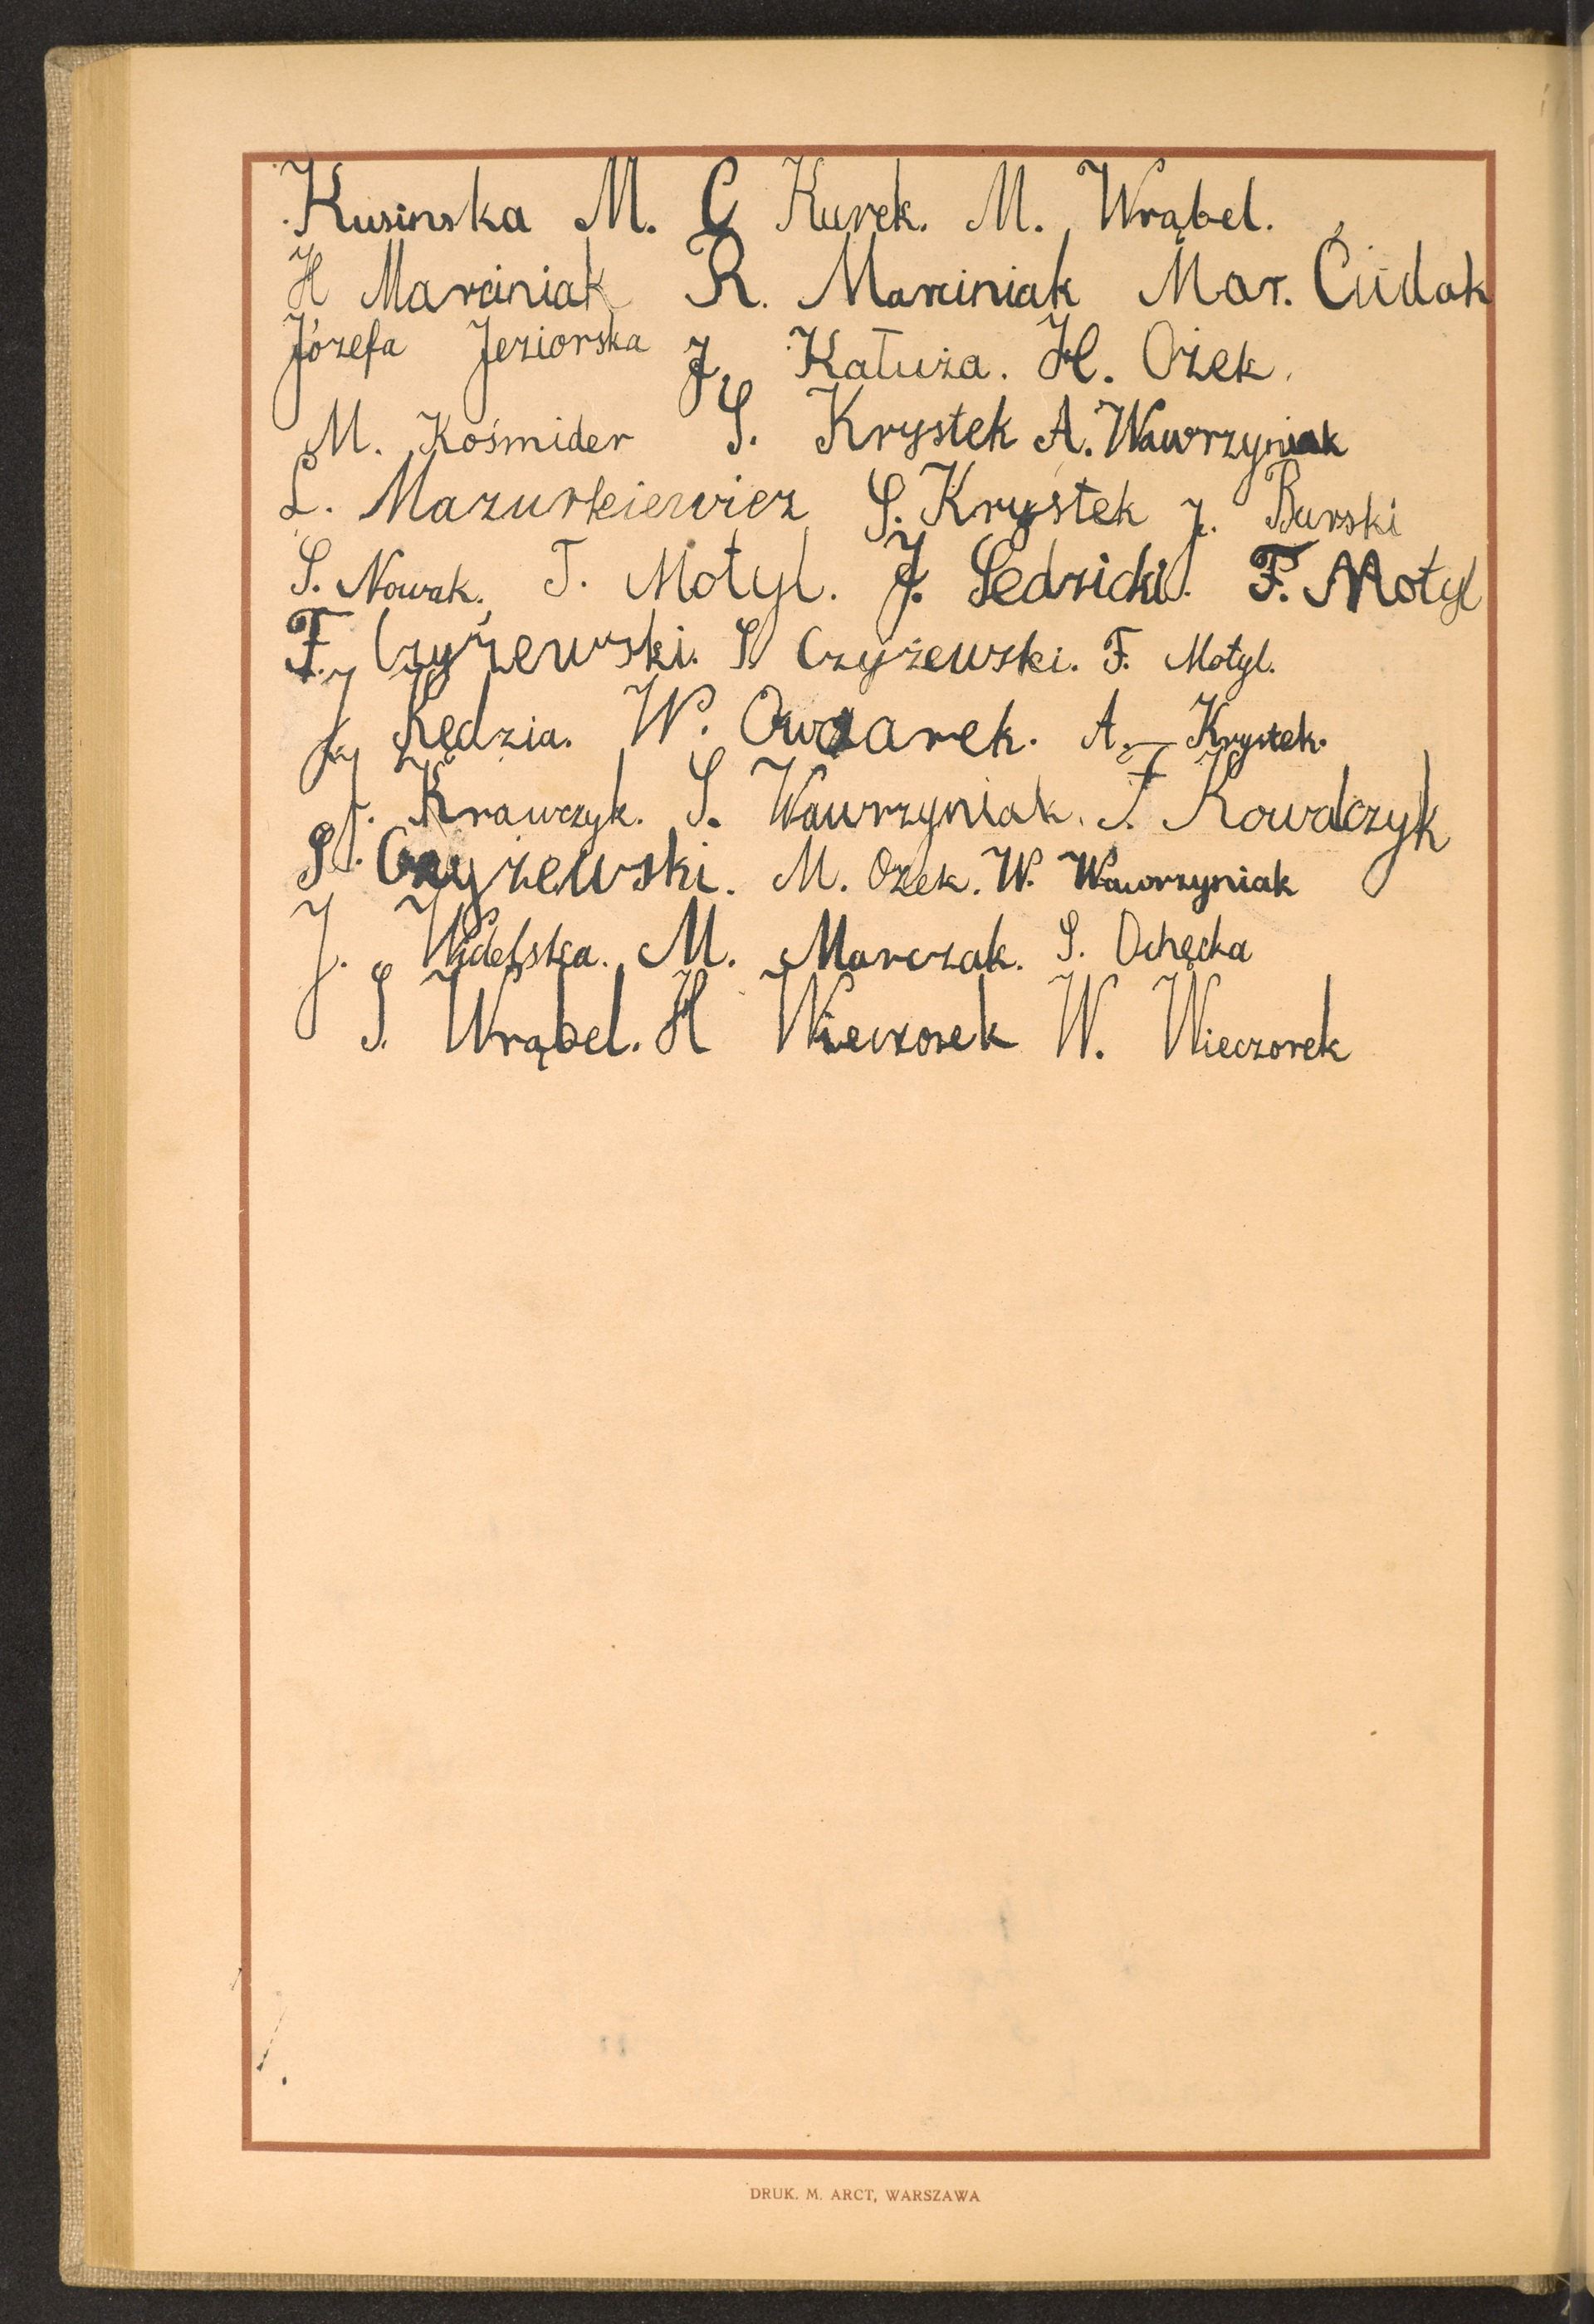 Kusinska M. C Kurek. M. Wrąbel.
H Marciniak R. Marciniak Mar. Ciudak
Józefa Jeziorska J. Kałuża. H. Ożek.
M. Kośmider S. Krystek A. Wawrzyniak
L. Mazurkiewicz S. Krystek J. Burski
S. Nowak. T. Motyl. J. Sedzicki. F. Motyl
F. Czyżewski. S. Czyżewski. F. Motyl.
J. Kędzia. W. Owczarek. A. Krystek.
J. Krawczyk. S. Wawrzyniak. F. Kowalczyk
S. Czyżewski. M. Ożek. W. Wawrzyniak
J. Widelska. M. Marczak. S. Ochęcka
S. Wrąbel. H Wieczorek W. Wieczorek
DRUK. M. ARCT, WARSZAWA